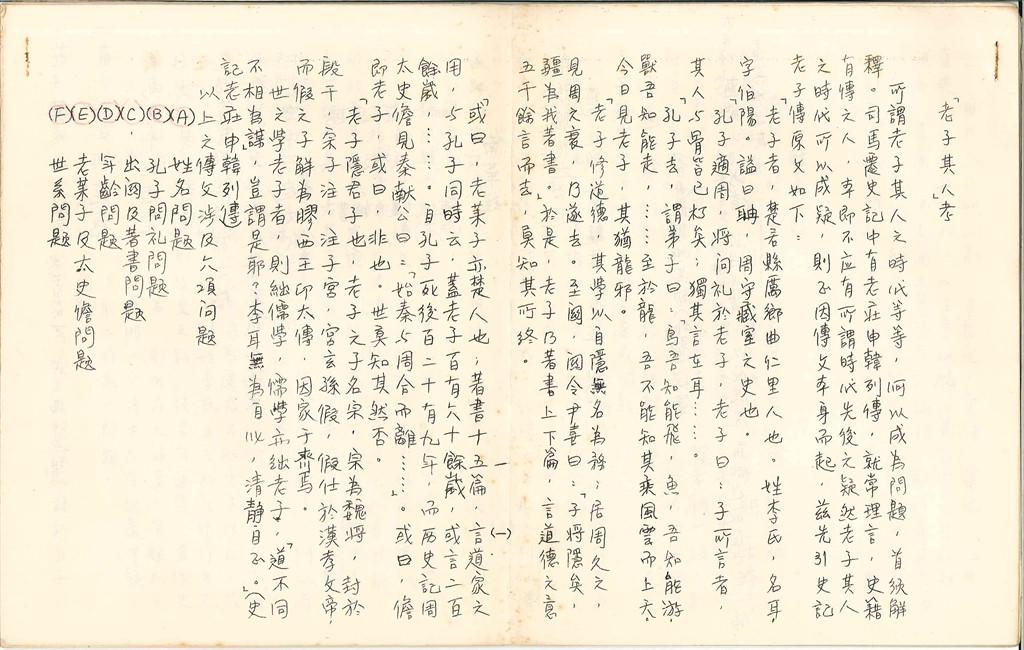 「老子其人」考
所謂老子其人之時代等等，何以成為問題，首須解
釋。司馬遷史記中有老莊申韓列傳，就常理言，史籍
有傳之人，本即不应有所謂時代先後之疑然老子其人
之時代所以成疑，則正因傳文本身而起，茲先引史記
老子傳原文如下：
「老子者，楚苦縣厲鄉曲仁里人也。姓李氏，名耳，
字伯陽。諡曰聃，周守藏室之史也。
「孔子適周，將问礼於老子，老子曰：子所言者，
其人与骨皆已朽矣；獨其言在耳……
「孔子去，謂第子曰：「鳥吾知能飛，魚，吾知能游，
獸吾知能走，……至於龍，吾不能知其乘風雲而上天。
今日見老子，其猶龍邪。
「老子修道德，其學以自隱無名為務；居周久之，
見周之衰，乃遂去。至関，関令尹喜曰：「子將隱矣，
彊為我著書。」於是，老子乃著書上下篇，言道德之意
五千餘言而去，莫知其所終。
一
(一)
「或曰，老萊子亦楚人也，著書十五篇，言道家之
用，与孔子同時云，蓋老子百有六十餘歲，或言二百
餘歲，……。自孔子死後百二十有九年，而历史記周
太史儋見秦献公曰：「始秦与周合而離……」。或曰，儋
即老子，或曰非也。世莫知其然否。
「老子隱君子也，老子之子名宗，宗為魏將，封於
段干，宗子注，注子宮，宮玄孫假，假仕於漢孝文帝，
而假之子解為膠西王卬太傳，因家于齊焉。
「世之學老子者，則絀儒學，儒學亦絀老子，「道不同
不相為謀，豈謂是耶？李耳無為自化，清靜自正。」（史
記老莊申韓列傳
以上之傳文涉及六項问題
(A) 姓名問題
(B) 孔子問礼問題
(C) 出関及著書問題
(D) 年齡問題
(E) 老萊子及太史儋問題
(F) 世系問題